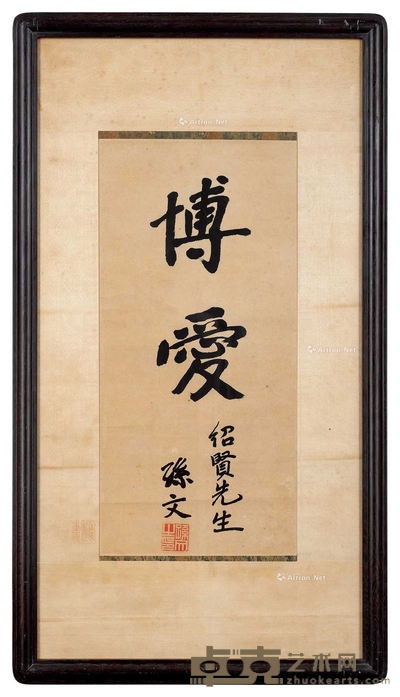 博愛
紹賢先生
孫文
Artron.Net
Artron.Net
Artron.Net
卓克艺术网
zhuokearts.com